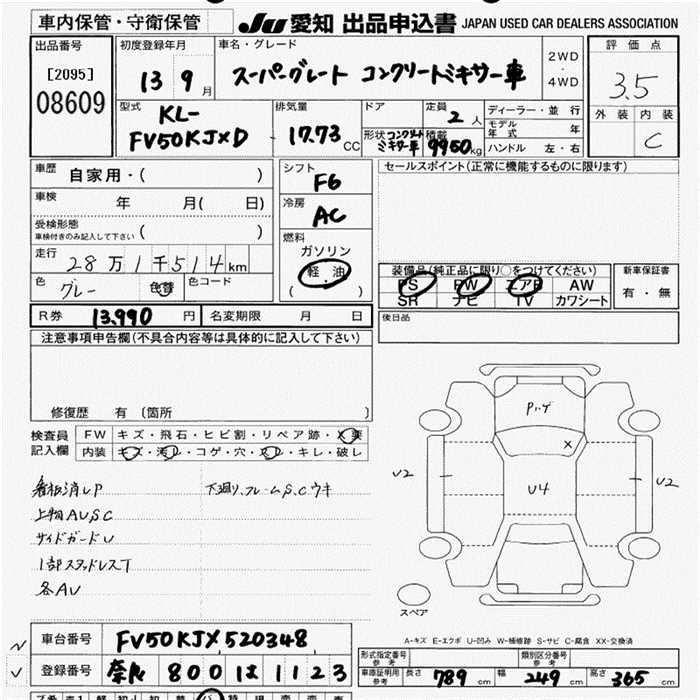 車内保管・守衛保管
JU 愛知 出品申込書 JAPAN USED CAR DEALERS ASSOCIATION
出品番号
[2095]
08609
初度登録年月
13 9 月
車名・グレード
スーパーグレート コンクリートミキサー車
2WD
・
4WD
評価点
3.5
外装 内装
C
型式
KL-
FV50KJXD
排気量
17.73 CC
ドア
形状 コンクリートミキサー車
定員
2 人
積載
9950 kg
ディーラー・並行
モデル年式 年
ハンドル 左・右
車歴
自家用・( )
車検
年 月( 日)
受検形態
車検付きのみ記入して下さい ( )
走行
28万1千514km
色
グレー
色替
色コード
シフト
F6
冷房
AC
燃料
ガソリン
軽油
( )
セールスポイント(正常に機能するものに限ります)
装備品(純正品に限り○をつけてください)
PS PW エアB AW
SR ナビ TV カワシート
新車保証書
有・無
R券 13,990 円
名変期限 月 日
後日品
注意事項申告欄(不具合内容等は具体的に記入して下さい)
修復歴 有 (箇所 )
検査員
記入欄
FW キズ・飛石・ヒビ割・リペア跡・X要
内装 キズ・汚レ・コゲ・穴・スレ・キレ・破レ
看板消しP
上物AUSC
サイドガードU
1部スタッドレスT
各AU
下廻り、フレームS、Cウキ
Pハゲ
X
U4
U2
U2
スペア
A-キズ E-エクボ U-凹み W-補修跡 S-サビ C-腐食 XX-交換済
車台番号 FV50KJX520348
登録番号 奈良 800 は 1123
形式指定番号
参考
類別区分番号
参考
車庫証明用
参考
長さ 789 cm
幅 249 cm
高さ 365 cm